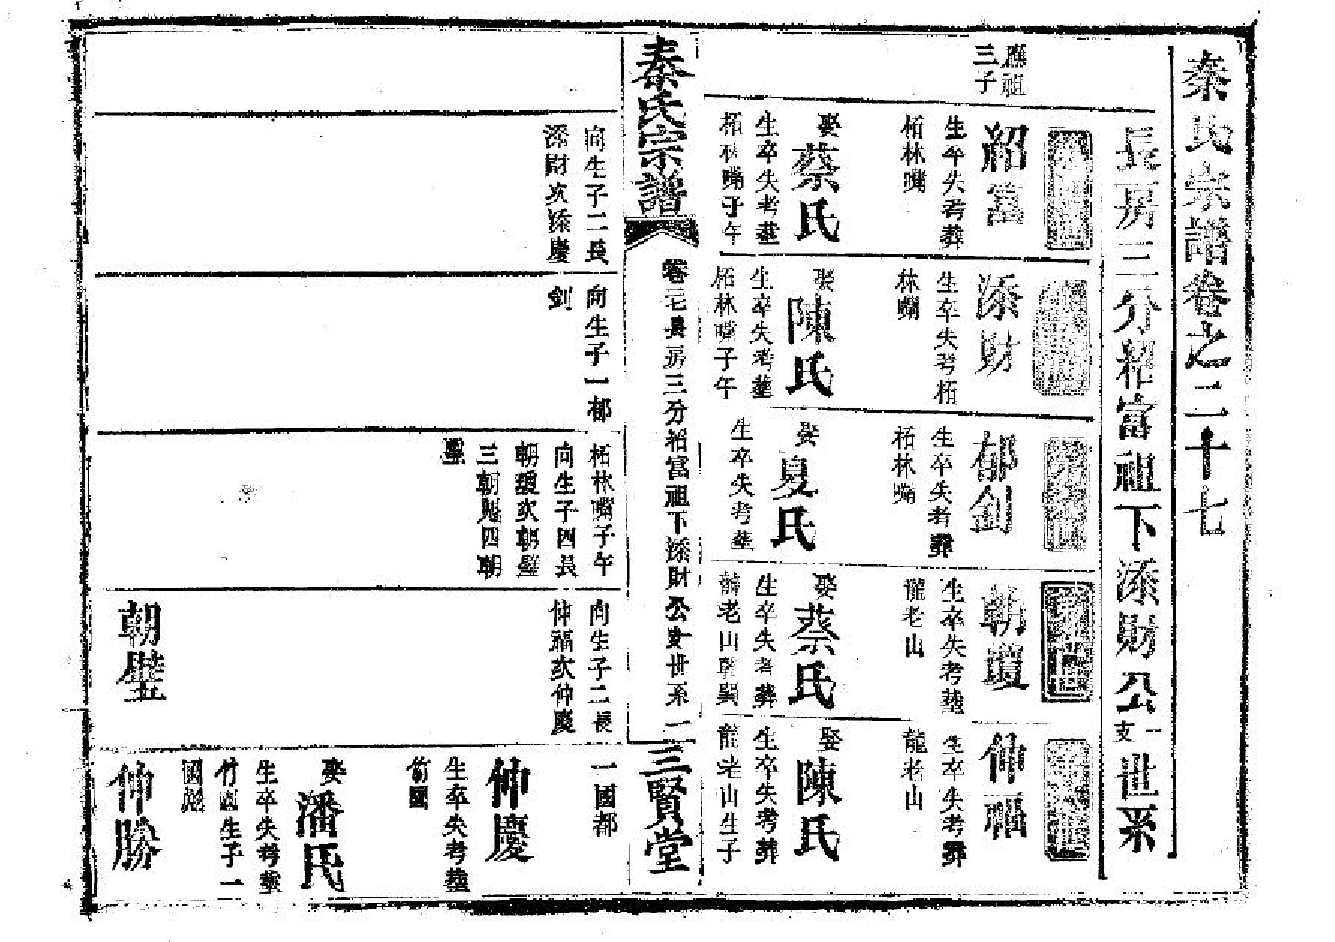 秦氏宗譜卷之二十七
長房三分紹富祖下添財公一支世系
應祖
三子
紹富
生卒失考葬
柘林嘴
娶蔡氏
生卒失考塟
柘林嘴子午
向生子二長
添財次添慶
添財
生卒失考柘
林嘴
娶陳氏
生卒失考塟
柘林嘴子午
向生子一郁
釗
郁釗
生卒失考葬
柘林嘴
娶夏氏
生卒失考塟
柘林嘴子午
向生子四長
朝瓊次朝璧
三朝
四朝
生卒失考塟
龍老山
娶蔡氏
生卒失考葬
龍老山乾巽
向生子二長
仲福次仲慶
朝璧
仲福
生卒失考葬
龍老山
娶陳氏
生卒失考葬
龍老山生子
一國都
仲慶
生卒失考塟
竹園
娶潘氏
生卒失考塟
竹園生子一
國彪
仲勝
秦氏宗譜
長房三分紹富祖下添財公支世系
一
三賢堂